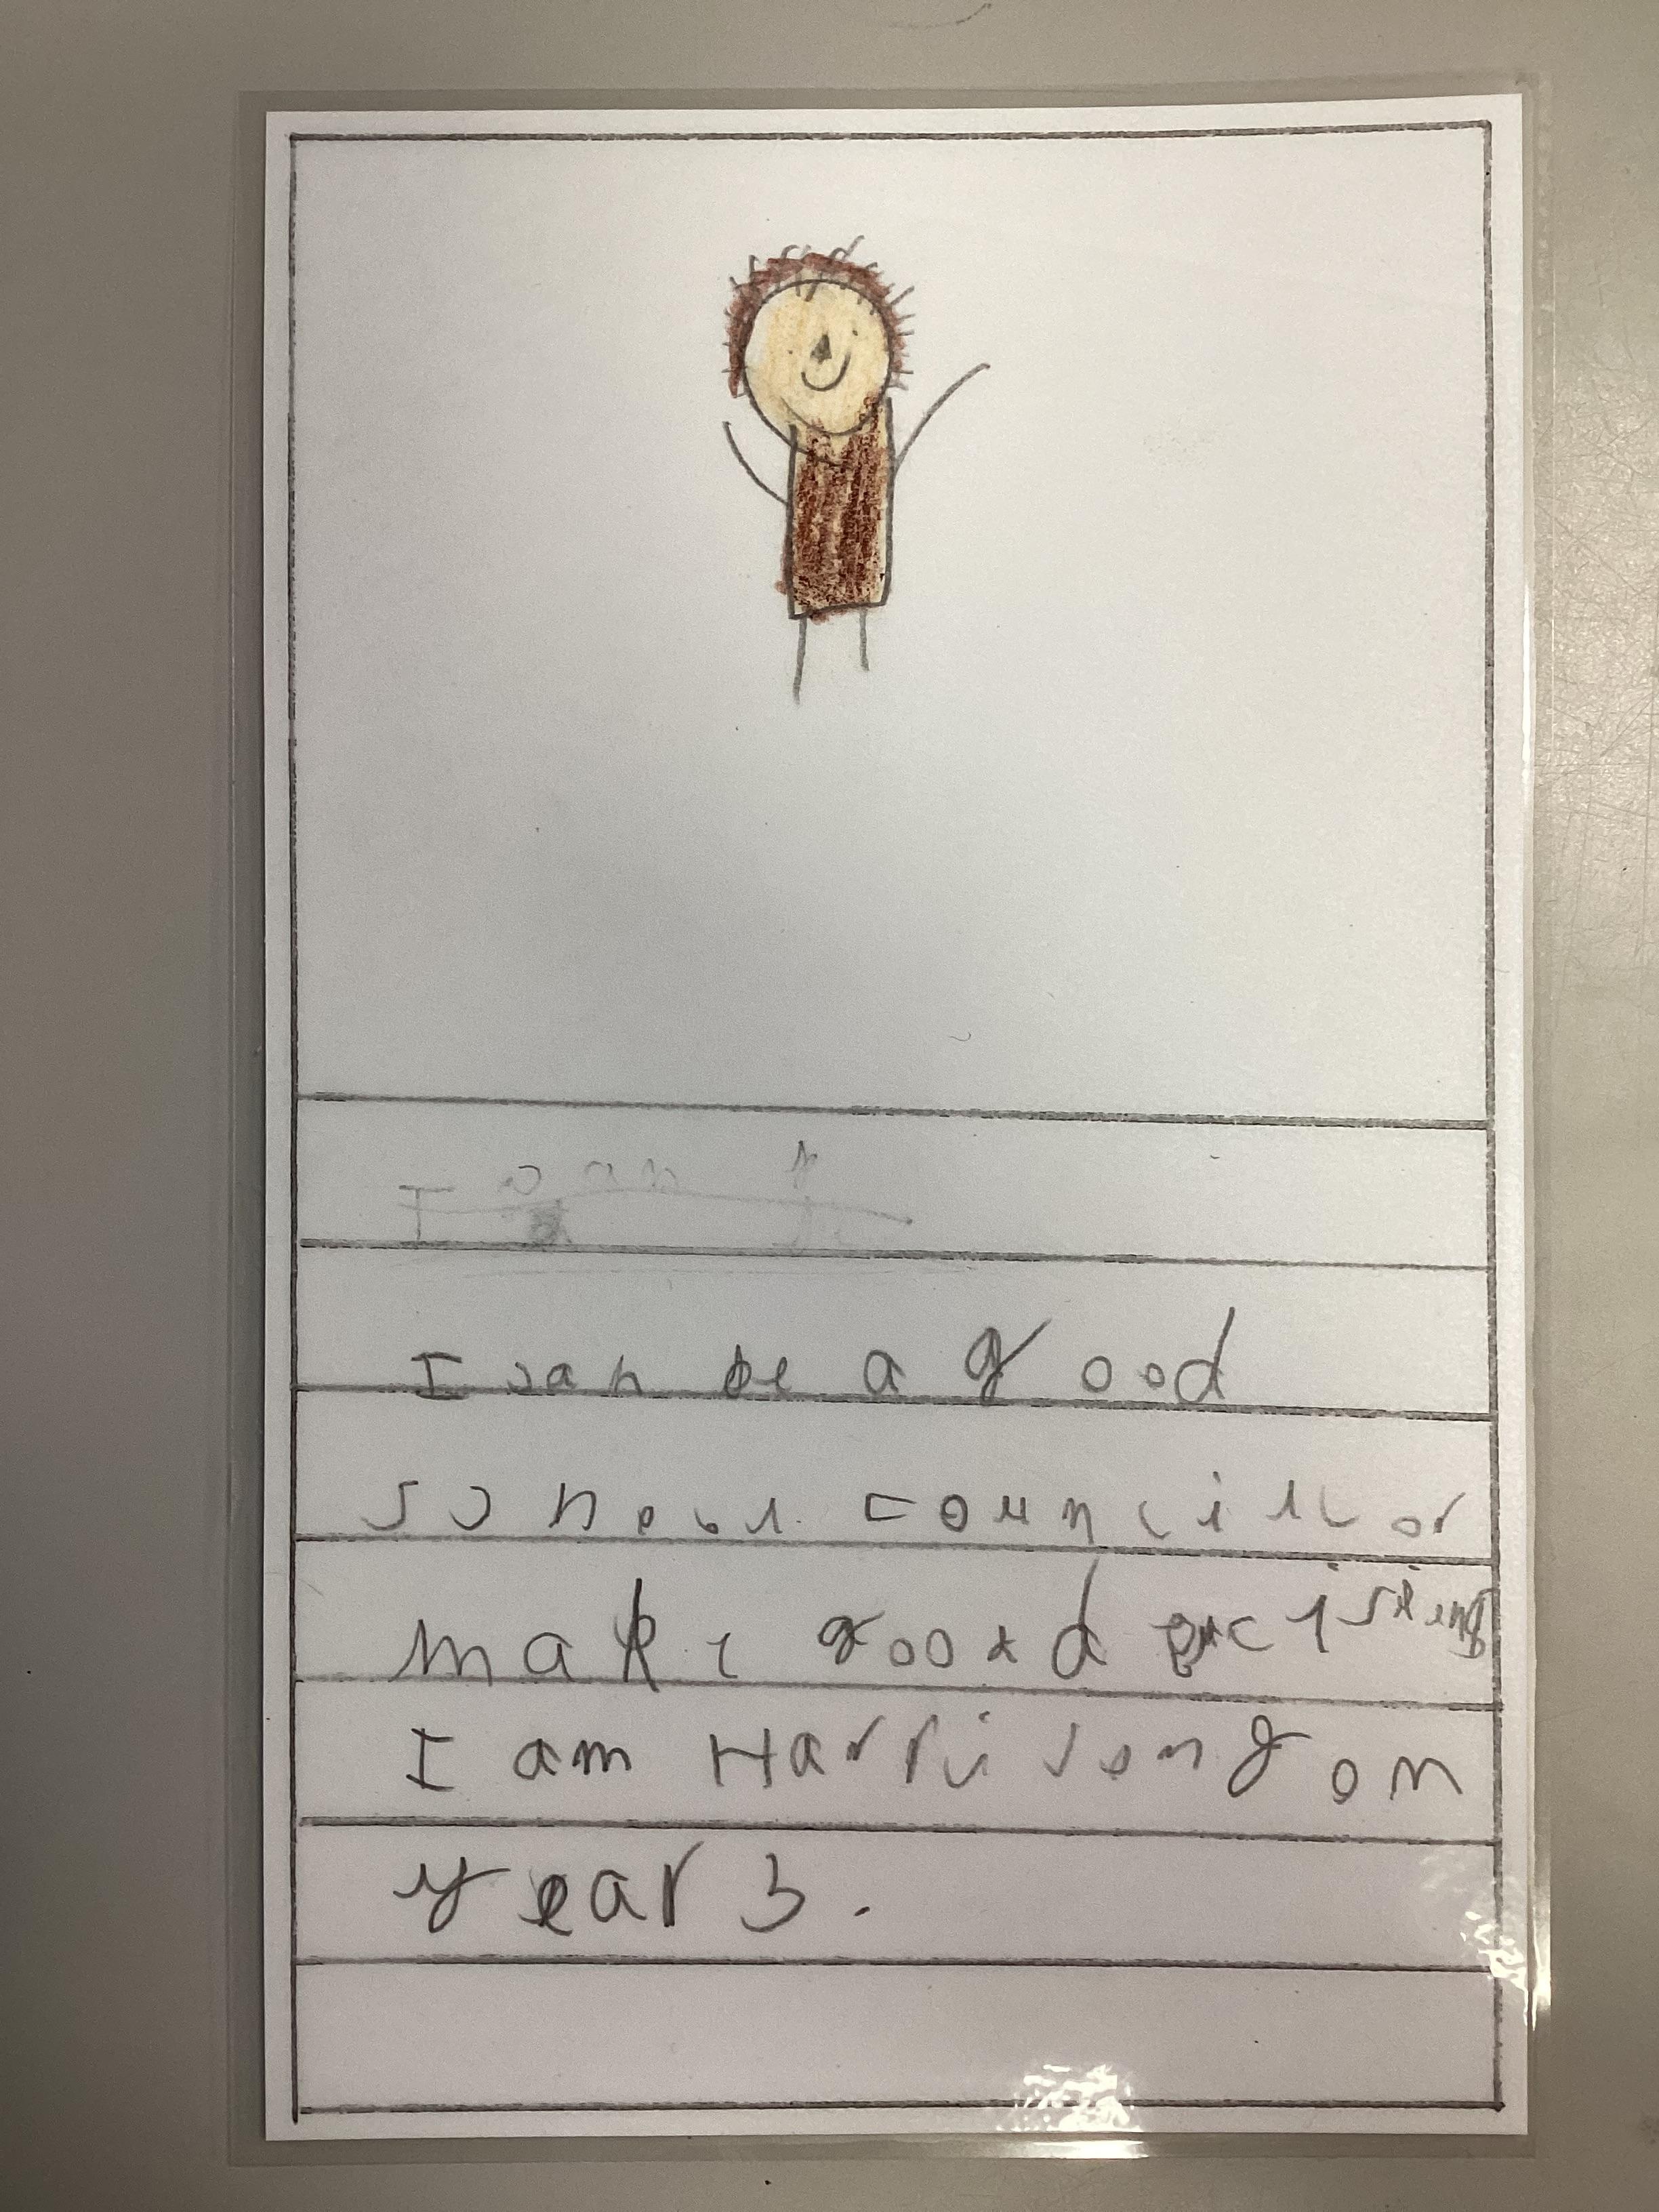 I can
I can be a good
school councillor
make good
I am Harrison g on
year 3.